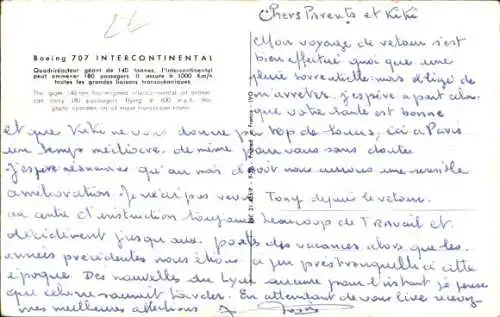 Boeing 707 INTERCONTINENTAL
Quadriréacteur géant de 140 tonnes, l'Intercontinental
peut emmener 180 passagers. Il assure à 1000 Km/h
toutes les grandes liaisons transocéaniques.
The giant, 140 ton four-engined intercontinental jet airliner
can carry 180 passengers flying à 600 m.p.h. this
plane operates on all major transocean routes.
Chers Parents et Kiki
Mon voyage de retour s'est
bien effectué quoi que une
pluie torrentielle m'ait obligé de
m'arrêter. J'espère a part cela
que votre santé est bonne
et que Kiki ne vous donne pas trop de soucis, ici à Paris
un temps médiocre, de même pour vous sans doute
j'espère néanmoins qu'au mois d'août nous aurons une sensible
amélioration. Je n'ai pas
Tony depuis le retour.
au centre d'instruction toujours beaucoup de TRAVAIL et
décidément jusqu'aux portes des vacances alors que les
années précédentes nous étions à peu près tranquilles à cette
époque. Des nouvelles du Lycée aucune pour l'instant je pense
que cela ne saurait tarder. En attendant de vous lire recevez
mes meilleures affections